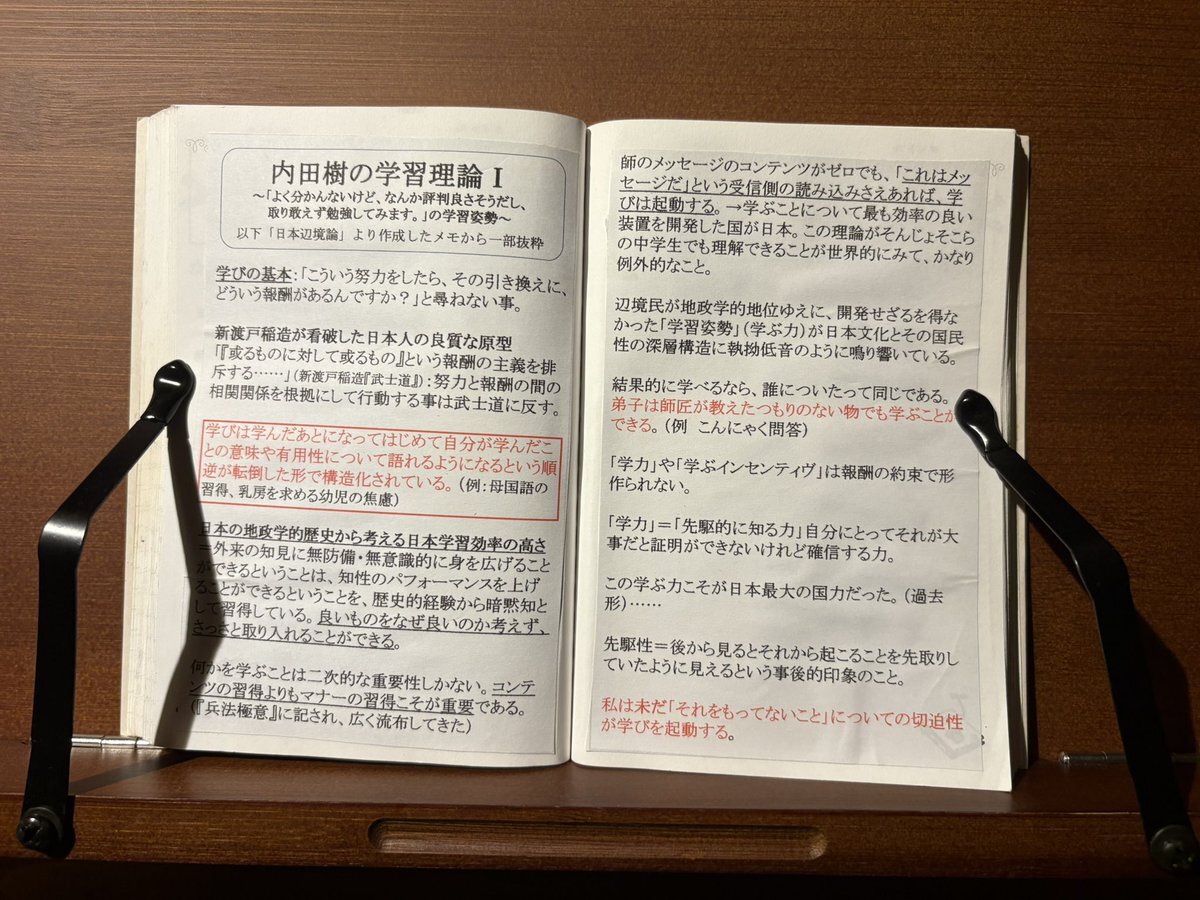 内田樹の学習理論Ⅰ
～「よく分かんないけど、なんか評判良さそうだし、
取り敢えず勉強してみます。」の学習姿勢～
以下「日本辺境論」より作成したメモから一部抜粋
学びの基本：「こういう努力をしたら、その引き換えに、
どういう報酬があるんですか？」と尋ねない事。
新渡戸稲造が看破した日本人の良質な原型
「『或るものに対して或るもの』という報酬の主義を排
斥する……」（新渡戸稲造『武士道』）：努力と報酬の間の
相関関係を根拠にして行動する事は武士道に反す。
学びは学んだあとになってはじめて自分が学んだこ
との意味や有用性について語れるようになるという順
逆が転倒した形で構造化されている。（例：母国語の
習得、乳房を求める幼児の焦慮）
日本の地政学的歴史から考える日本学習効率の高さ
＝外来の知見に無防備・無意識的に身を広げること
ができるということは、知性のパフォーマンスを上げ
ることができるということを、歴史的経験から暗黙知と
して習得している。良いものをなぜ良いのか考えず、
さっさと取り入れることができる。
何かを学ぶことは二次的な重要性しかない。コンテ
ンツの習得よりもマナーの習得こそが重要である。
（『兵法極意』に記され、広く流布してきた）
師のメッセージのコンテンツがゼロでも、「これはメッ
セージだ」という受信側の読み込みさえあれば、学
びは起動する。→学ぶことについて最も効率の良い
装置を開発した国が日本。この理論がそんじょそこら
の中学生でも理解できることが世界的にみて、かなり
例外的なこと。
辺境民が地政学的地位ゆえに、開発せざるを得な
かった「学習姿勢」（学ぶ力）が日本文化とその国民
性の深層構造に執拗低音のように鳴り響いている。
結果的に学べるなら、誰についたって同じである。
弟子は師匠が教えたつもりのない物でも学ぶことが
できる。（例　こんにゃく問答）
「学力」や「学ぶインセンティヴ」は報酬の約束で形
作られない。
「学力」＝「先駆的に知る力」自分にとってそれが大
事だと証明ができないけれど確信する力。
この学ぶ力こそが日本最大の国力だった。（過去
形）……
先駆性＝後から見るとそれから起こることを先取りし
ていたように見えるという事後的印象のこと。
私は未だ「それをもってないこと」についての切迫性
が学びを起動する。